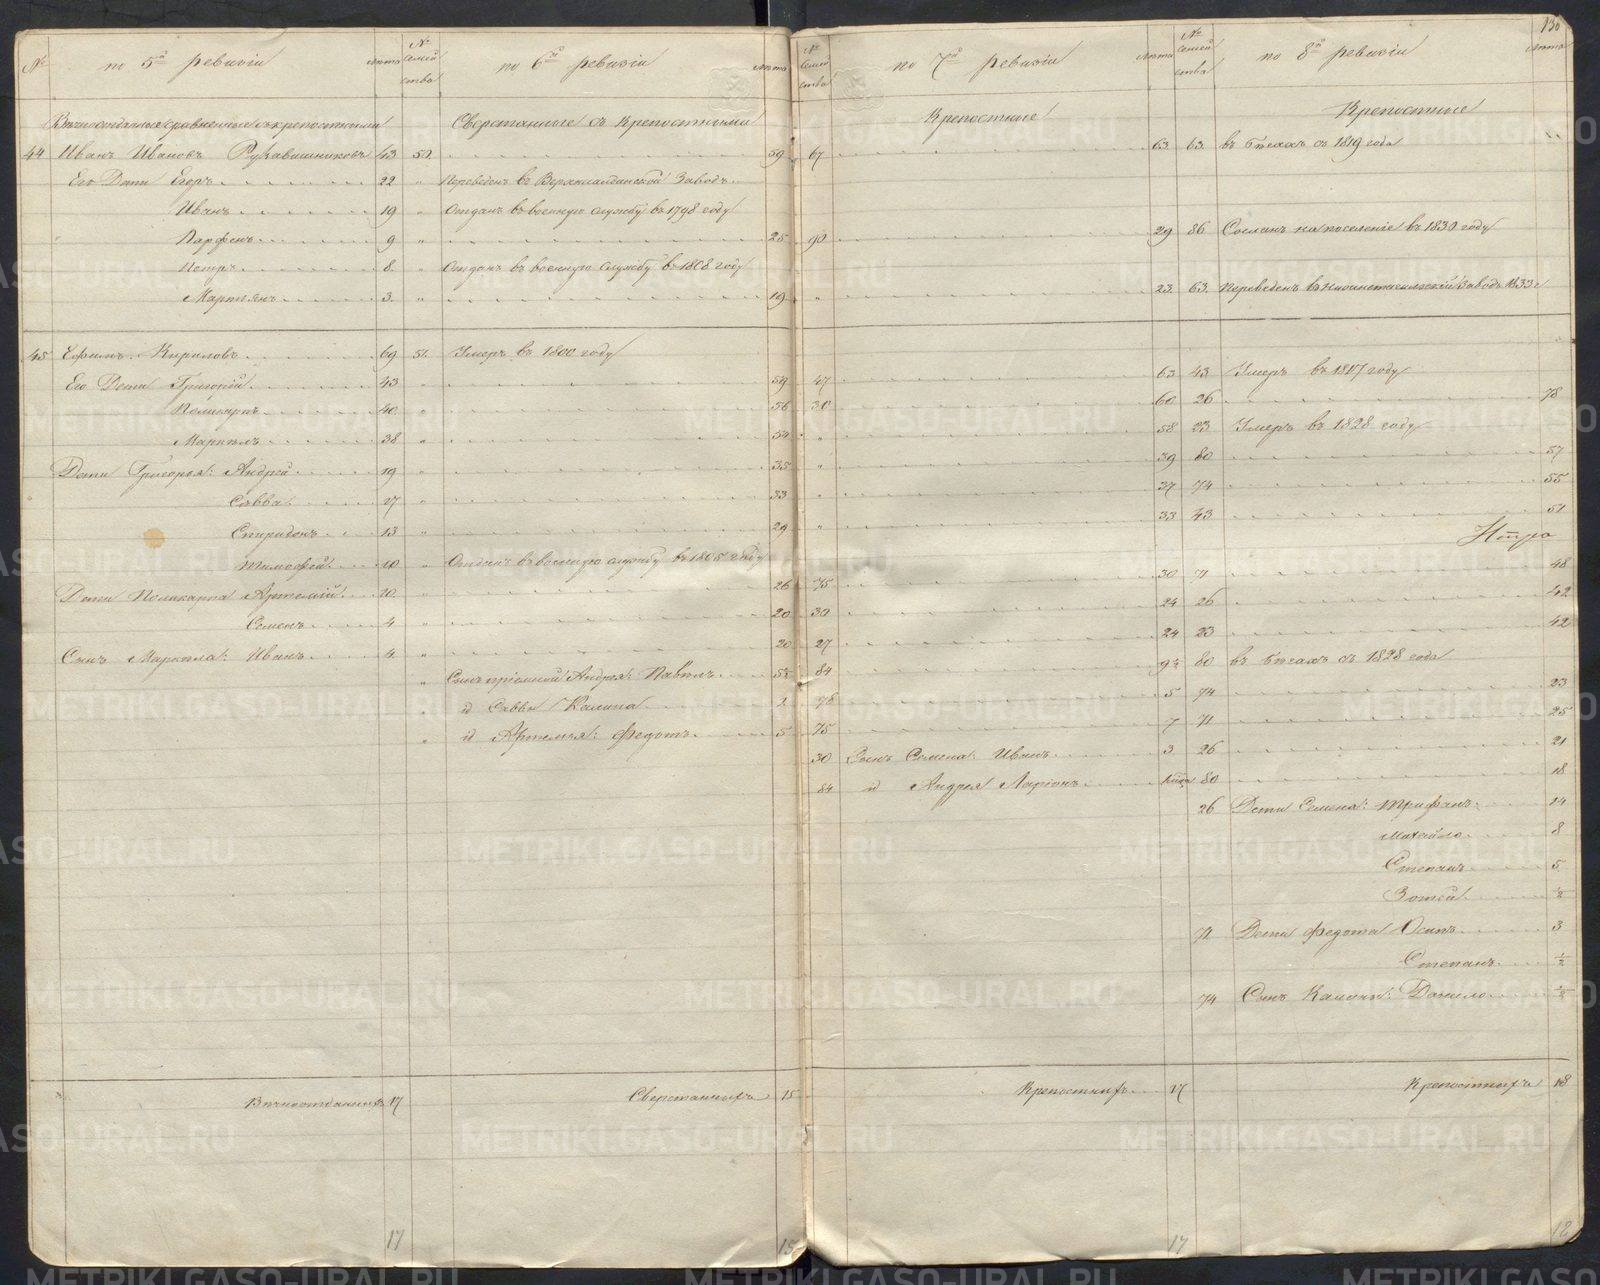 130
№ по 5й ревизіи лѣта № семейства по 6й ревизіи лѣта № семейства по 7й ревизіи лѣта № семейства по 8й ревизіи лѣта
Вѣчноотданные сравненные съ крепостными Сверстанные съ Крепостными Крепостные Крепостные
44 Иванъ Ивановъ Рукавишниковъ 43 50. 59 67 63. 63. въ бѣгахъ съ 1819 года
Его Дети Егоръ 22 " Переведенъ в Верхисалдинской Заводъ.
Иванъ 19 " Отданъ въ военную службу въ 1798 году
Парфенъ 9 " 25 90 29 86 Сосланъ на поселеніе въ 1830 году
Петръ 8. " Отданъ въ военную службу въ 1808 году
Мартьянъ 3. " 19 " 23. 63. Переведенъ въ Заводъ 1833 г
45 Ефимъ Кириловъ 69 51. Умеръ въ 1800 году
Его Дети Григорій 43 " 59 47 63 43 Умеръ въ 1817 году
Поликарпъ 40. " 56 30 60 26 78
38 " 54 " 58 23 Умеръ въ 1828 году
Дети Григорья: Андрей 19 " 35 " 39 80 57
Савва 17 " 33 " 37 74 55
Спиридонъ 13 " 29 " 33 43 51
Тимофей 10 " Отданъ въ военную службу въ 1805 году
Дети Поликарпа Артемій 10. " 26 75 30 71 48
Семенъ 4 " 20 30 24 26 42
Сынъ Иванъ 4 " 20 27 24 23 42
" Сынъ пріемной Андрея: Павелъ 5½ 84 9½ 80 въ бѣгахъ съ 1828 года
и Саввы Калина 1 76 5 74 23
" и Артемья: Федотъ 5 75 7 71 25
30 Сынъ Семена: Иванъ 3 26 21
84 и Андрея Ларіонъ 80 18
26 Дети Семена: Трифанъ 14
Михайло 8
Степанъ 5
Зотей ½
71 Дети Федота Осипъ 3
Степанъ ½
74 Сынъ Калины: Данило ½
Вѣчноотданныхъ 17 Сверстанныхъ 15 Крепостныхъ 17 Крепостныхъ 18
17 15 17 18
METRIKI.GASO-URAL.RU